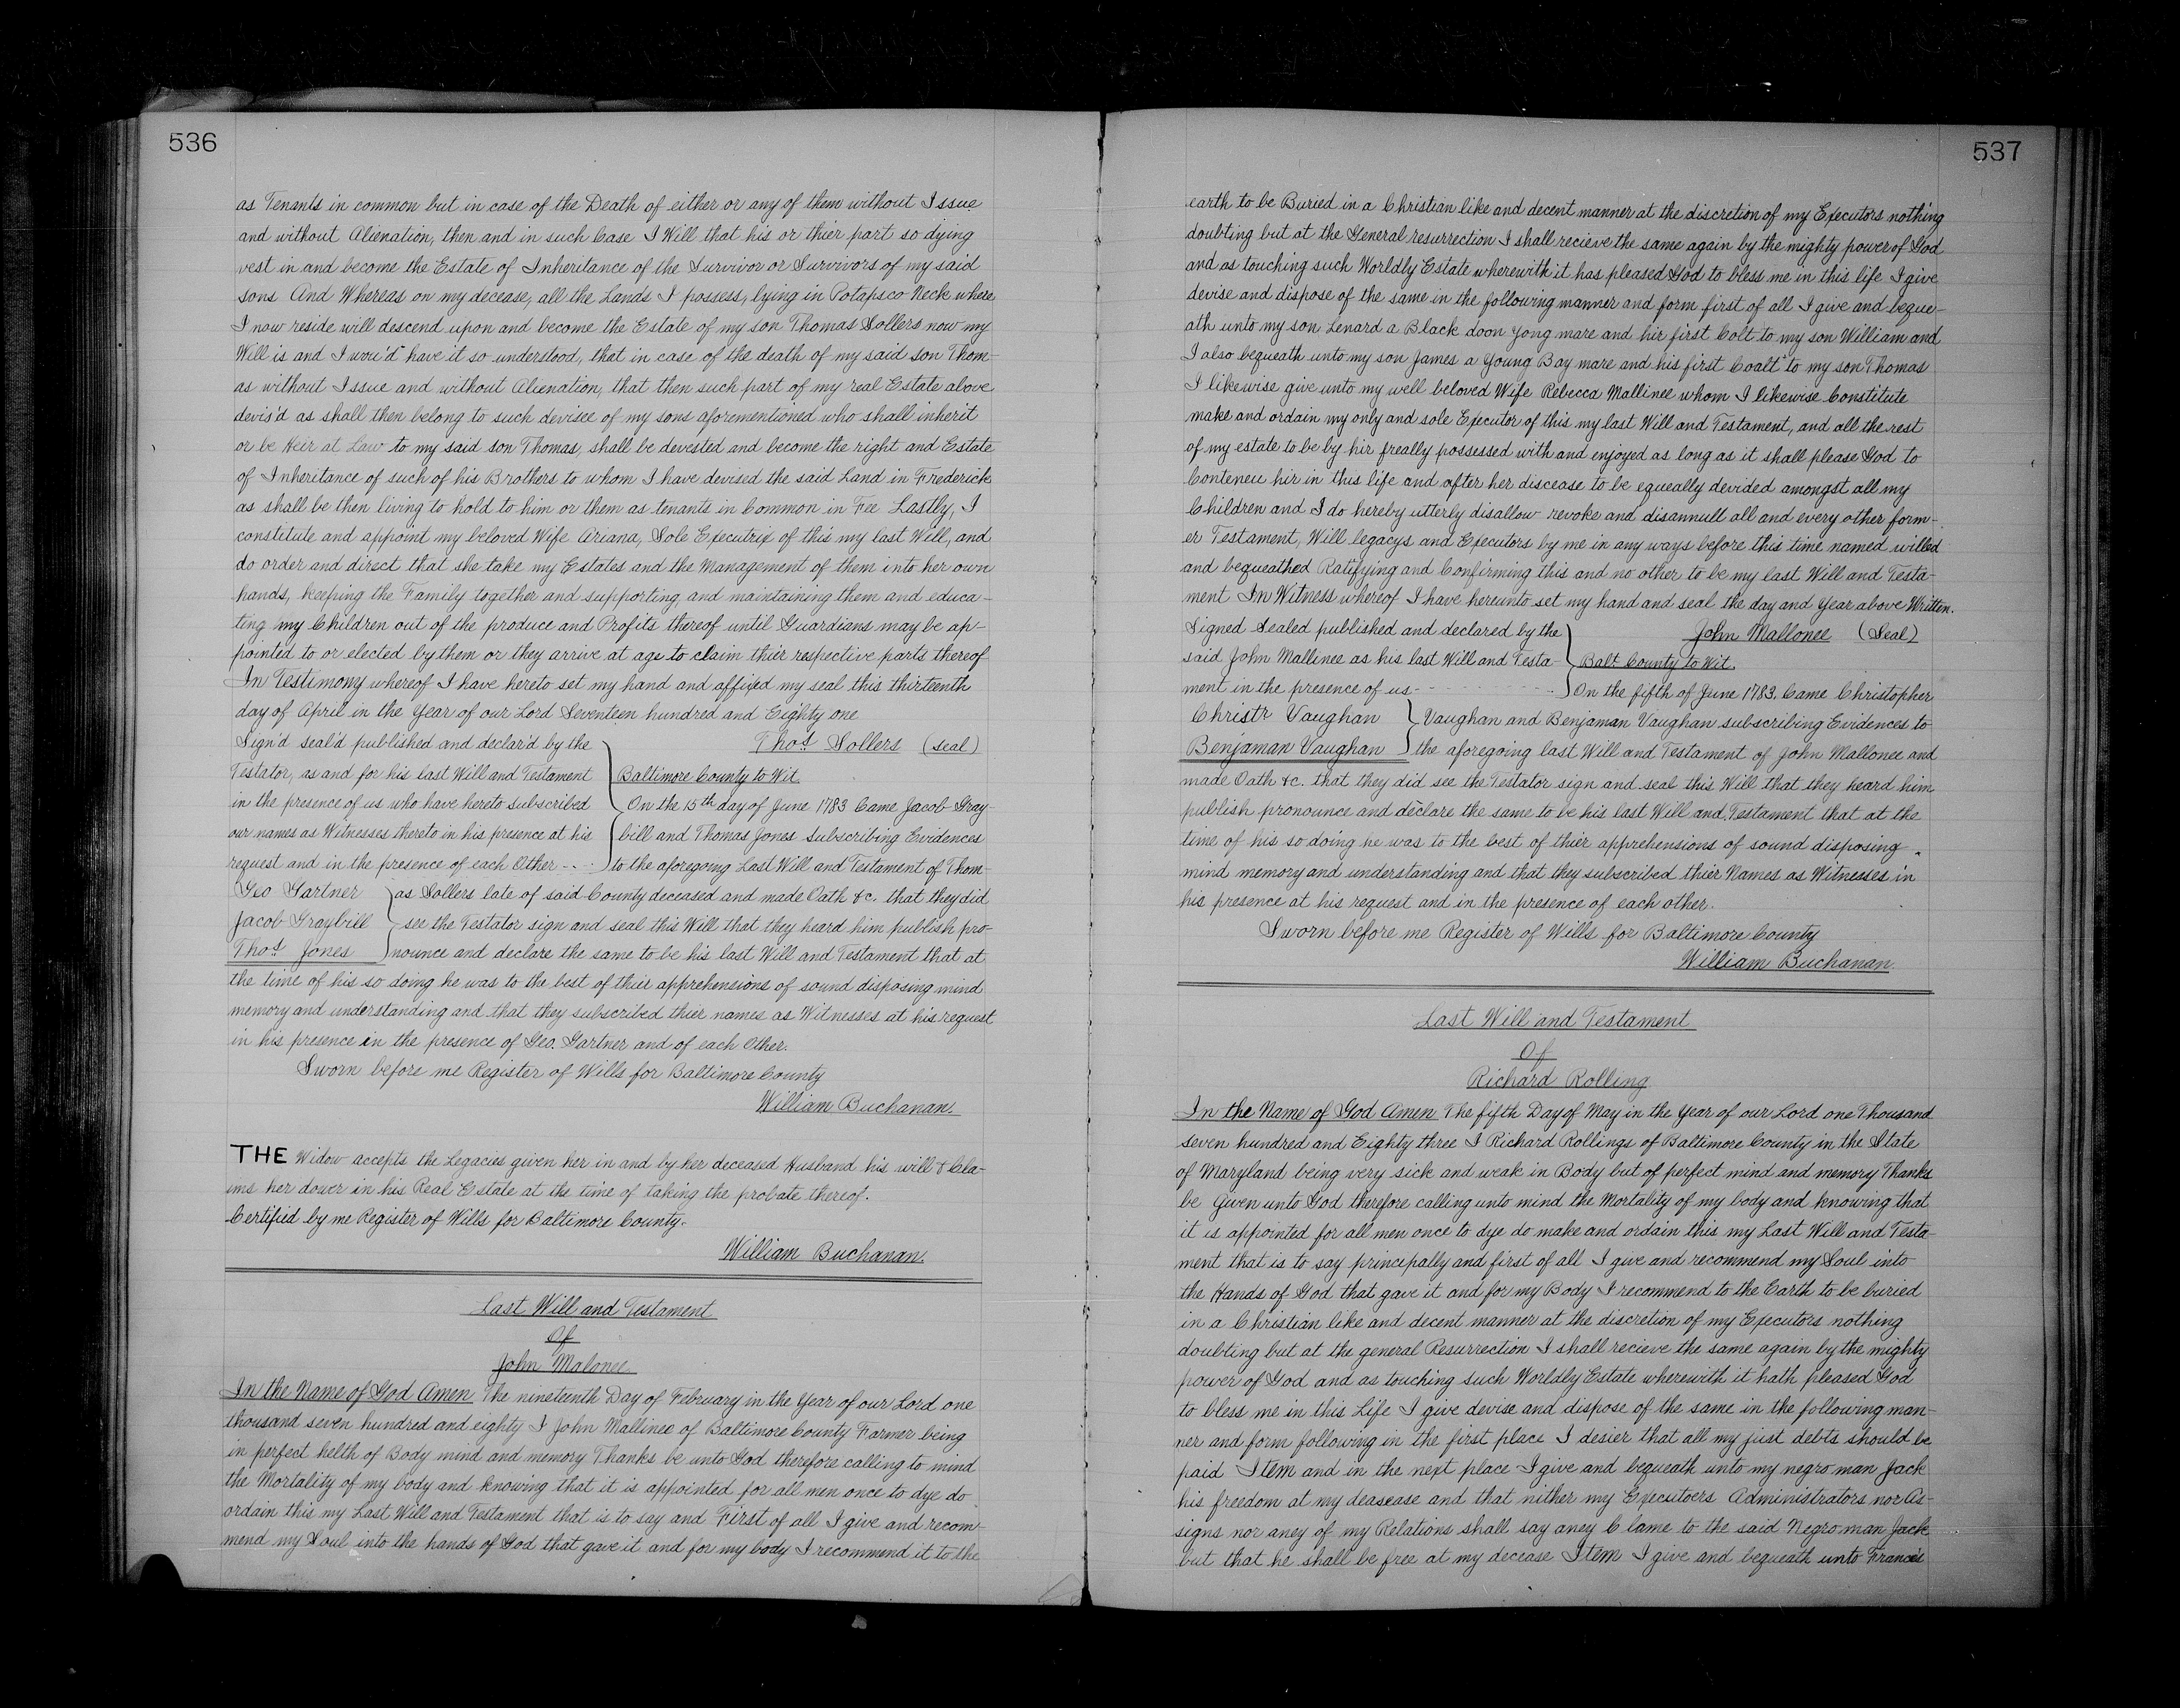 536
as Tenants in common but in case of the Death of either or any of them without Issue
and without Alienation, then and in such Case I Will that his or thier part so dying
vest in and become the Estate of Inheritance of the Survivor or Survivors of my said
sons And Whereas on my decease, all the Lands I possess, lying in Potapsco Neck where
I now reside will descend upon and become the Estate of my son Thomas Sollers now my
Will is and I wou'd have it so understood, that in case of the death of my said son Thom-
as without Issue and without Alienation, that then such part of my real Estate above
devis'd as shall then belong to such devisee of my sons aforementioned who shall inherit
or be Heir at Law to my said son Thomas, shall be devested and become the right and Estate
of Inheritance of such of his Brothers to whom I have devised the said Land in Frederick
as shall be then living to hold to him or them as tenants in Common in Fee Lastly, I
constitute and appoint my beloved Wife Ariana, Sole Executrix of this my last Will, and
do order and direct that she take my Estates and the Management of them into her own
hands, keeping the Family together and supporting and maintaining them and educa-
ting my Children out of the produce and Profits thereof until Guardians may be ap-
pointed to or elected by them or they arrive at age to claim thier respective parts thereof
In Testimony whereof I have hereto set my hand and affixed my seal this thirteenth
day of April in the Year of our Lord Seventeen hundred and Eighty one
Sign'd seal'd published and declar'd by the
Testator, as and for his last Will and Testament
in the presence of us who have hereto subscribed
our names as Witnesses thereto in his presence at his
request and in the presence of each Other
Geo Gartner
Jacob Graybill
Thos. Jones
Thos. Sollers (seal)
Baltimore County to Wit.
On the 15th day of June 1783 Came Jacob Gray-
bill and Thomas Jones Subscribing Evidences
to the aforegoing Last Will and Testament of Thom-
as Sollers late of said County deceased and made Oath &c. that they did
see the Testator sign and seal this Will that they heard him publish pro-
nounce and declare the same to be his last Will and Testament that at
the time of his so doing he was to the best of thier apprehensions of sound disposing mind
memory and understanding and that they subscribed thier names as Witnesses at his request
in his presence in the presence of Geo. Gartner and of each Other.
Sworn before me Register of Wills for Baltimore County
William Buchanan.
THE Widow accepts the Legacies given her in and by her deceased Husband his will & Cla-
ims her dower in his Real Estate at the time of taking the probate thereof.
Certified by me Register of Wills for Baltimore County.
William Buchanan.
Last Will and Testament
Of
John Malonee
In the Name of God Amen The nineteenth Day of February in the Year of our Lord one
thousand seven hundred and eighty I John Mallinee of Baltimore County Farmer being
in perfect helth of Body mind and memory Thanks be unto God therefore calling to mind
the Mortality of my body and knowing that it is appointed for all men once to dye do
ordain this my Last Will and Testament that is to say and First of all I give and recom-
mend my Soul into the hands of God that gave it and for my body I recommend it to the
537
earth to be Buried in a Christian like and decent manner at the discretion of my Executors nothing
doubting but at the General resurrection I shall recieve the same again by the mighty power of God
and as touching such Worldly Estate wherewith it has pleased God to bless me in this life I give
devise and dispose of the same in the following manner and form first of all I give and beque-
ath unto my son Lenard a Black doon yong mare and hir first Colt to my son William and
I also bequeath unto my son James a Young Bay mare and his first Coalt to my son Thomas
I likewise give unto my well beloved Wife Rebecca Mallinee whom I likewise Constitute
make and ordain my only and sole Executor of this my last Will and Testament, and all the rest
of my estate to be by hir freally possessed with and enjoyed as long as it shall please God to
Conteneu hir in this life and after her discease to be equeally devided amongst all my
Children and I do hereby utterly disallow revoke and disannull all and every other form-
er Testament, Will legacys and Executors by me in any ways before this time named willed
and bequeathed Ratifying and Confirming this and no other to be my last Will and Testa-
ment In Witness whereof I have hereunto set my hand and seal the day and Year above Written.
Signed Sealed published and declared by the
said John Mallinee as his last Will and Testa-
ment in the presence of us
Christr Vaughan
Benjaman Vaughan
John Mallonee (Seal)
Balt. County to Wit.
On the fifth of June 1783. Came Christopher
Vaughan and Benjaman Vaughan subscribing Evidences to
the aforegoing last Will and Testament of John Mallonee and
made Oath &c. that they did see the Testator sign and seal this Will that they heard him
publish pronounce and declare the same to be his last Will and Testament that at the
time of his so doing he was to the best of thier apprehensions of sound disposing
mind memory and understanding and that they subscribed thier Names as Witnesses in
his presence at his request and in the presence of each other.
Sworn before me Register of Wills for Baltimore County
William Buchanan.
Last Will and Testament
Of
Richard Rolling
In the Name of God Amen The fifth Day of May in the Year of our Lord one Thousand
seven hundred and Eighty three I Richard Rollings of Baltimore County in the State
of Maryland being very sick and weak in Body but of perfect mind and memory Thanks
be Given unto God therefore calling unto mind the Mortality of my body and knowing that
it is appointed for all men once to dye do make and ordain this my Last Will and Testa-
ment that is to say principally and first of all I give and recommend my Soul into
the Hands of God that gave it and for my Body I recommend to the Earth to be buried
in a Christian like and decent manner at the discretion of my Executors nothing
doubting but at the general Resurrection I shall recieve the same again by the mighty
power of God and as touching such Worldly Estate wherewith it hath pleased God
to bless me in this Life I give devise and dispose of the same in the following man-
ner and form following in the first place I desier that all my just debts should be
paid Item and in the next place I give and bequeath unto my negro man Jack
his freedom at my deasease and that nither my Executoers Administrators nor As-
signs nor aney of my Relations shall say aney Clame to the said Negro man Jack
but that he shall be free at my decease Item I give and bequeath unto Francis